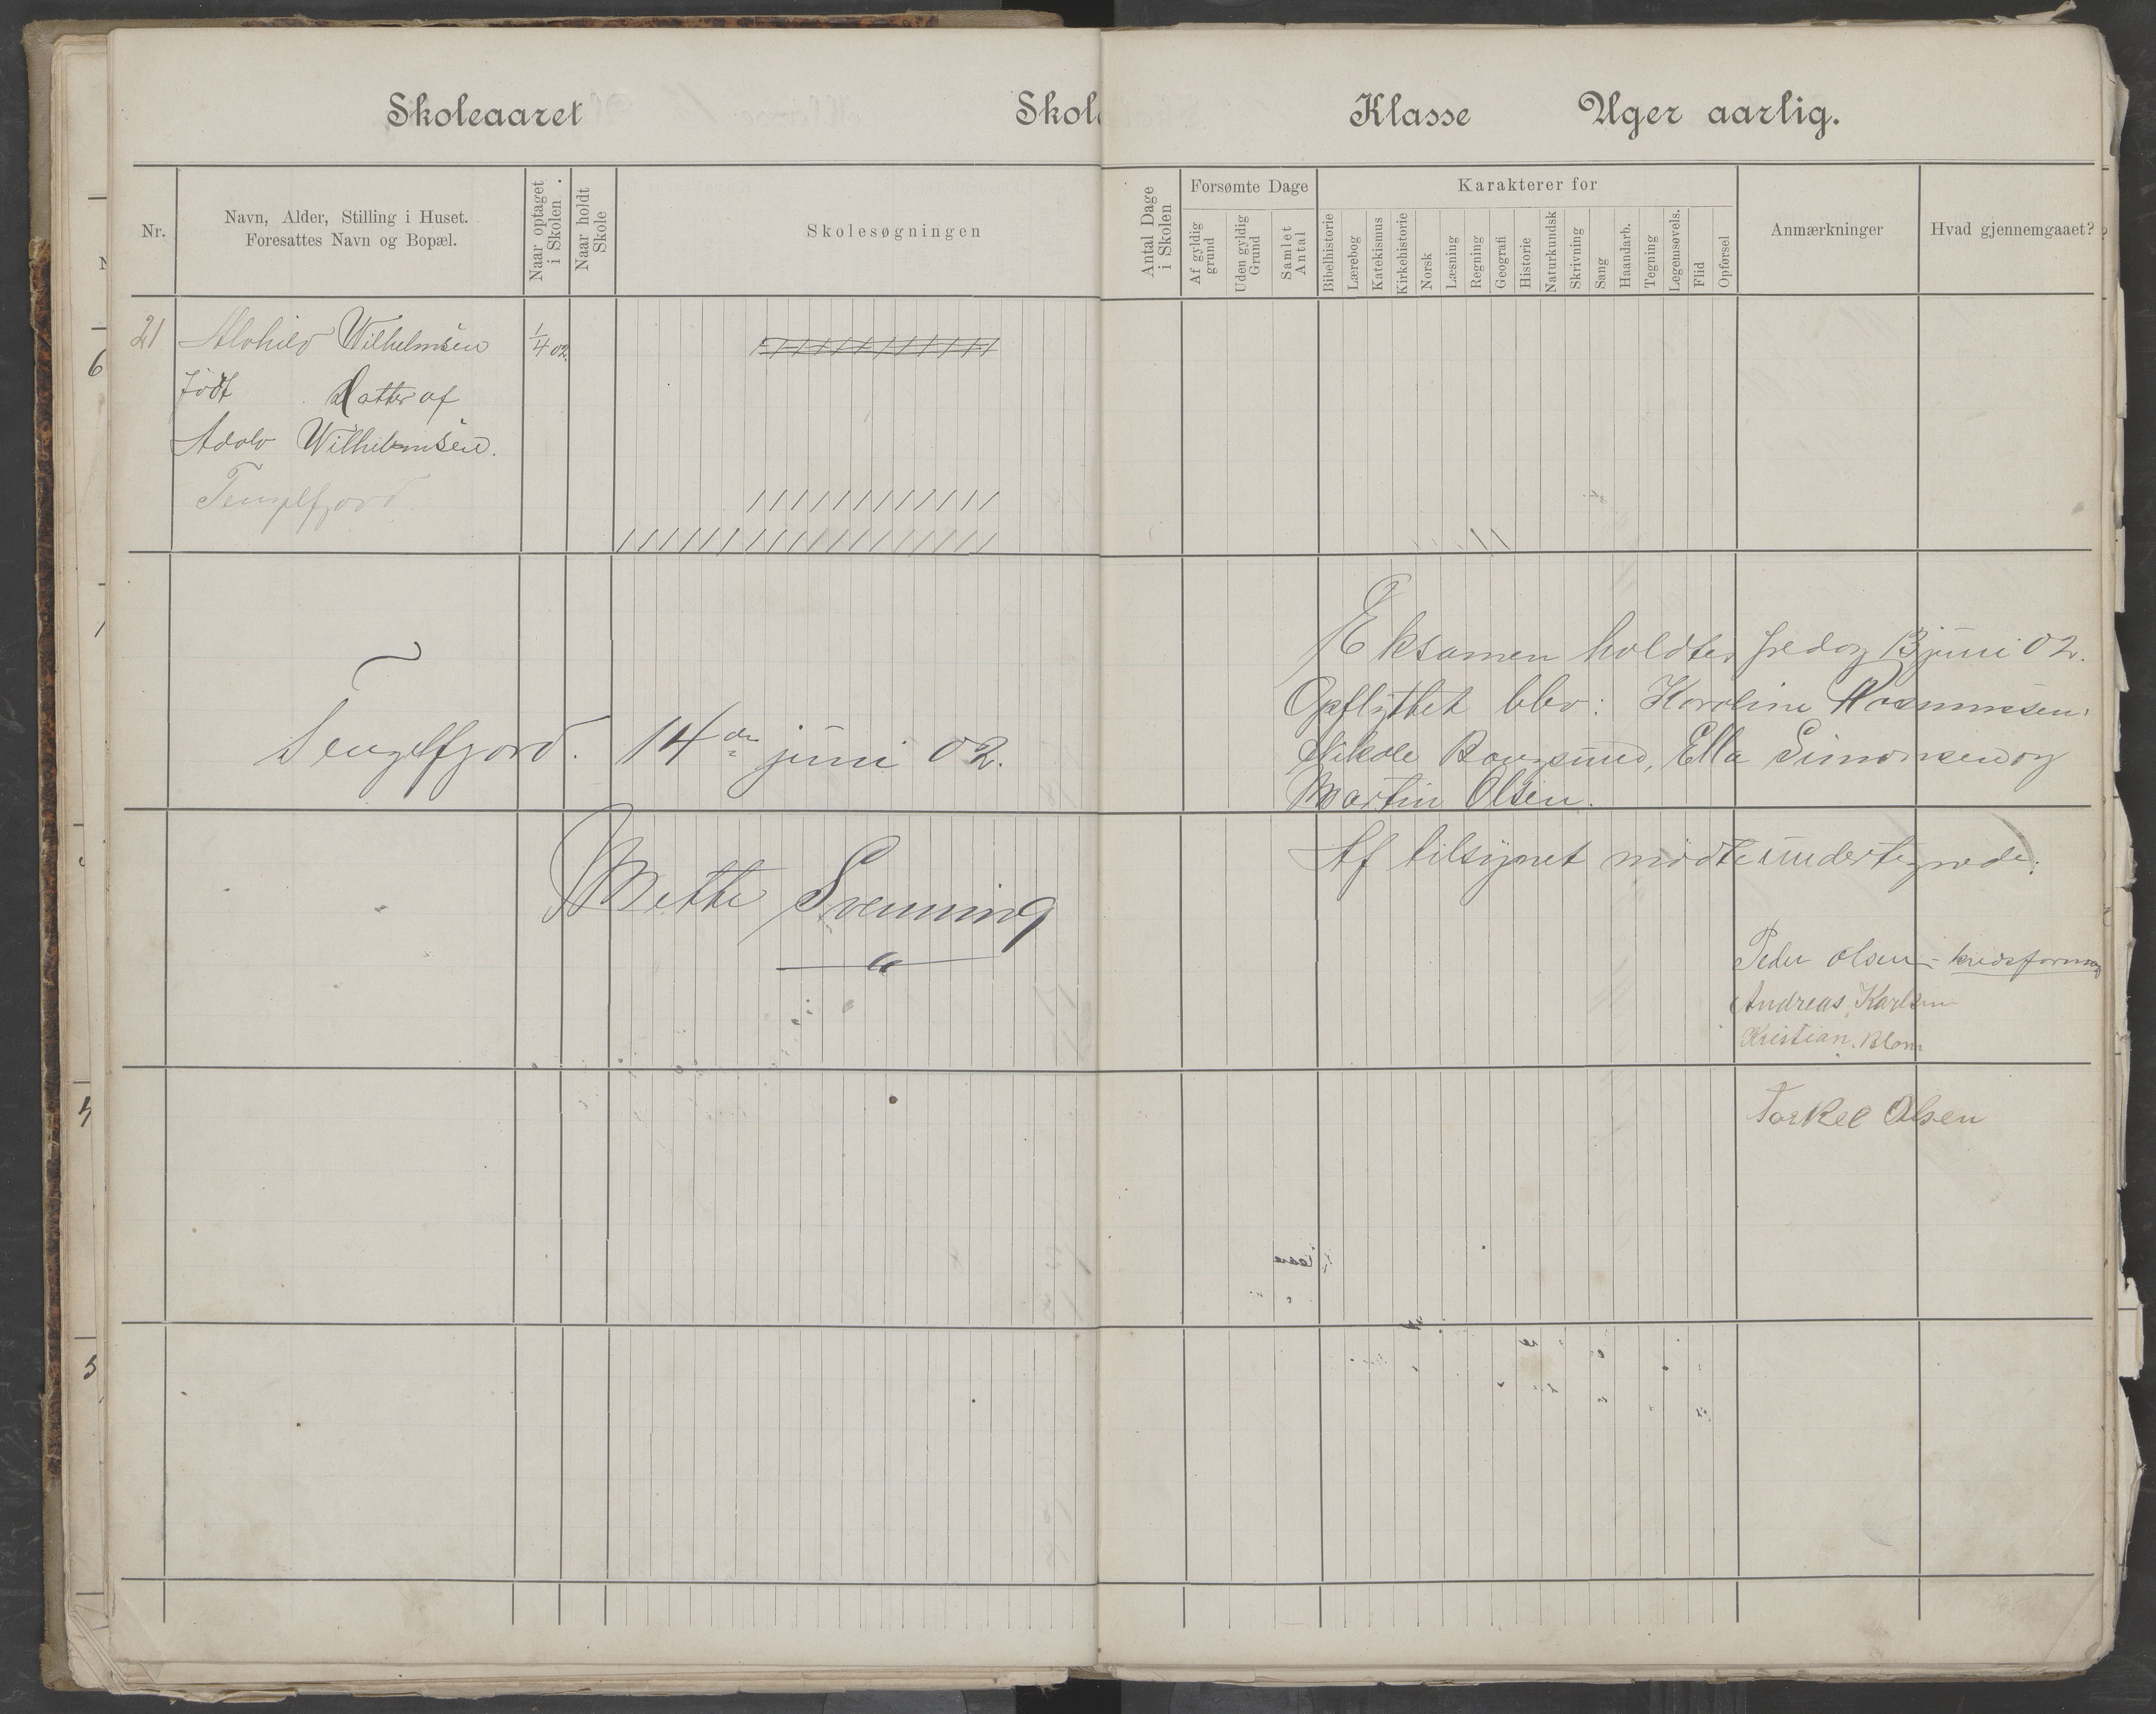 Skoleaaret
Skole
Klasse
Uger aarlig.
Nr.
Navn, Alder, Stilling i Huset.
Foresattes Navn og Bopæl.
Naar optaget
i Skolen.
Naar holdt
Skole
Skolesøgningen
Antal Dage
i Skolen
Forsømte Dage
Af gyldig
grund
Uden gyldig
Grund
Samlet
Antal
Karakterer for
Bibelhistorie
Lærebog
Katekismus
Kirkehistorie
Norsk
Læsning
Regning
Geografi
Historie
Naturkundsk
Skrivning
Sang
Haandarb.
Tegning
Legemsøvels.
Flid
Opførsel
Anmærkninger
Hvad gjennemgaaet?
21 Alvhild Wilhelmsen 1/4 02.
født Datter af
Adolv Wilhelmsen.
Tengelfjord.
Tengelfjord. 14de juni 02.
Mette Svenning
Eksamen holdtes fredag 13 juni 02.
Opflyttet blev: Karoline Rasmussen,
Nikole Ramsund, Ella Simonsen og
Martin Olsen.
Af tilsynet mødte undertegnede:
Peder Olsen - kredsformag
Andreas Karlsen
Kristian. Blom
Torkel Olsen